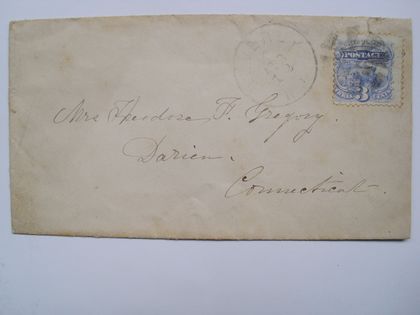 POSTAGE
3
Mrs Theodore F. Gregory.
Darien.
Connecticut.